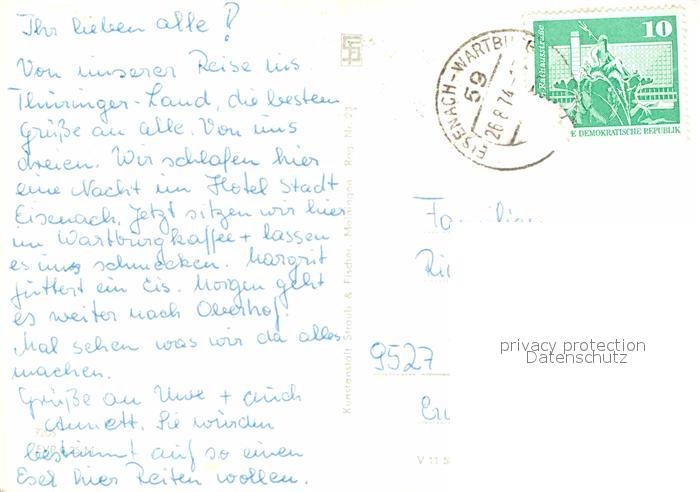 Ihr lieben alle!
Von unserer Reise ins
Thüringer-Land, die besten
Grüße an alle. Von uns
dreien. Wir schlafen hier
eine Nacht im Hotel Stadt
Eisenach. Jetzt sitzen wir hier
im Wartburgkaffee + lassen
es uns schmecken. Margrit
füttert ein Eis. Morgen geht
es weiter nach Oberhof.
Mal sehen was wir da alles
machen.
Grüße an Uwe + auch
Annett. Sie würden
bestimmt auf so einen
Esel hier Reiten wollen.
Kunstanstalt Straub & Fischer Meiningen
Reg. Nr.
EISENACH-WARTBU
59
26.8.74
10
Rathausstraße
E DEMOKRATISCHE REPUBLIK
Familie
9527
V 11 5
privacy protection
Datenschutz